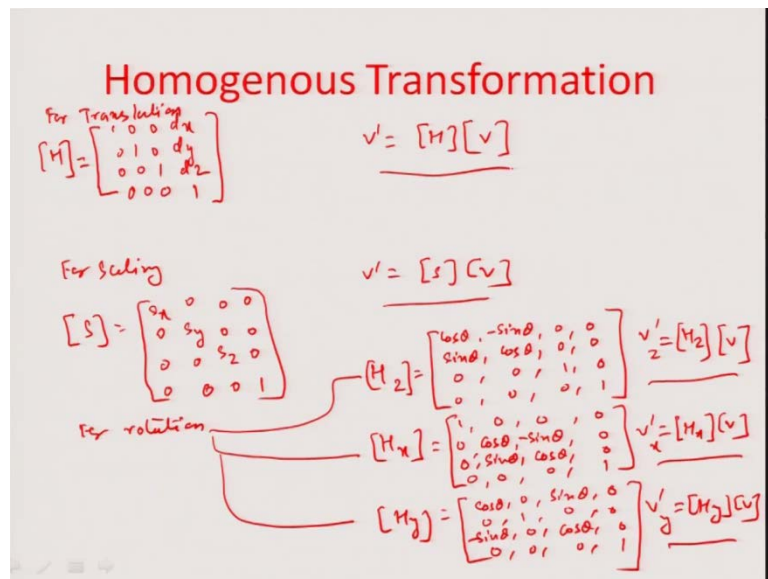 Homogenous Transformation
For Translation
[H] = [1 0 0 dx
0 1 0 dy
0 0 1 dz
0 0 0 1]
v' = [H][V]
For scaling
v' = [S][V]
[S] = [Sx 0 0 0
0 Sy 0 0
0 0 Sz 0
0 0 0 1]
For rotation
[Hz] = [cosθ, -sinθ, 0, 0
sinθ, cosθ, 0, 0
0, 0, 1, 0
0, 0, 0, 1]
v'z = [Hz][V]
[Hx] = [1, 0, 0, 0
0 cosθ, -sinθ, 0
0, sinθ, cosθ, 0
0, 0, 0, 1]
v'x = [Hx][V]
[Hy] = [cosθ, 0, sinθ, 0
0, 1, 0, 0
-sinθ, 0, cosθ, 0
0, 0, 0, 1]
v'y = [Hy][V]